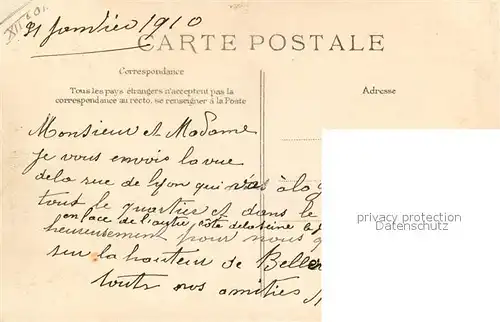 XII e 01.
31 Janvier 1910
CARTE POSTALE
Correspondance
Tous les pays étrangers n'acceptent pas la
correspondance au recto, se renseigner à la Poste
Adresse
Monsieur et Madame
je vous envois la vue
de la rue de Lyon qui vas à la
tout le quartier et dans le
en face de l'autre côté de la seine
heureusement pour nous
sur la hauteur de Belle
toute nos amities
privacy protection
Datenschutz